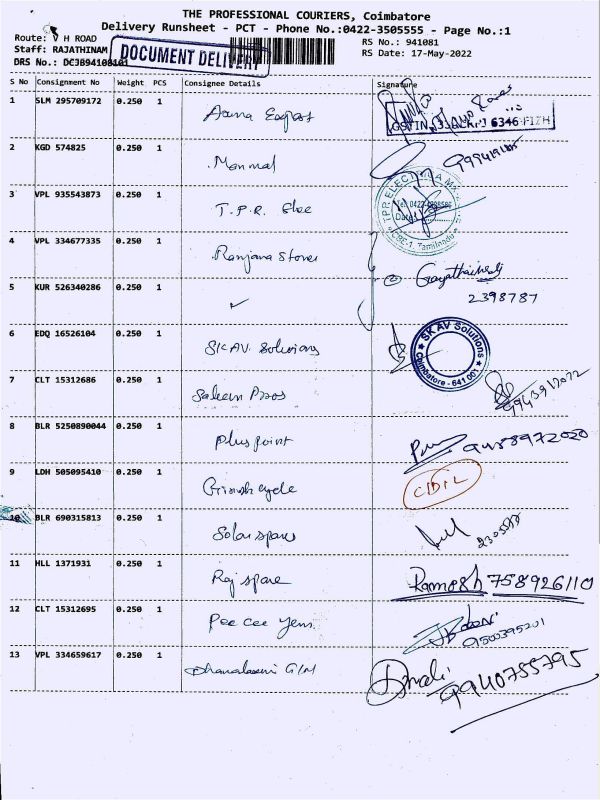 THE PROFESSIONAL COURIERS, Coimbatore
Delivery Runsheet - PCT - Phone No.:0422-3505555 - Page No.:1
Route: V H ROAD
RS No.: 941081
Staff: RAJATHINAM
DOCUMENT DELIVERY
RS Date: 17-May-2022
DRS No.: DCJB94108101
S No Consignment No Weight PCS Consignee Details Signature
1 SLM 295709172 0.250 1
2 KGD 574825 0.250 1
3 VPL 935543873 0.250 1 T.P.R.
4 VPL 334677335 0.250 1 Ranjana Stores
5 KUR 526340286 0.250 1 ✓ 2398787
6 EDQ 16526104 0.250 1 SKAV. Solutions SKAV Solutions Coimbatore - 641 001
7 CLT 15312686 0.250 1 Saleem Bros
8 BLR 5250890044 0.250 1 Plus point 9488972020
9 LDH 505095410 0.250 1 cycle
10 BLR 690315813 0.250 1 Solar spares
11 HLL 1371931 0.250 1 Raj spare Ramesh 758926110
12 CLT 15312695 0.250 1 Pee cee 9500395201
13 VPL 334659617 0.250 1 9940755795